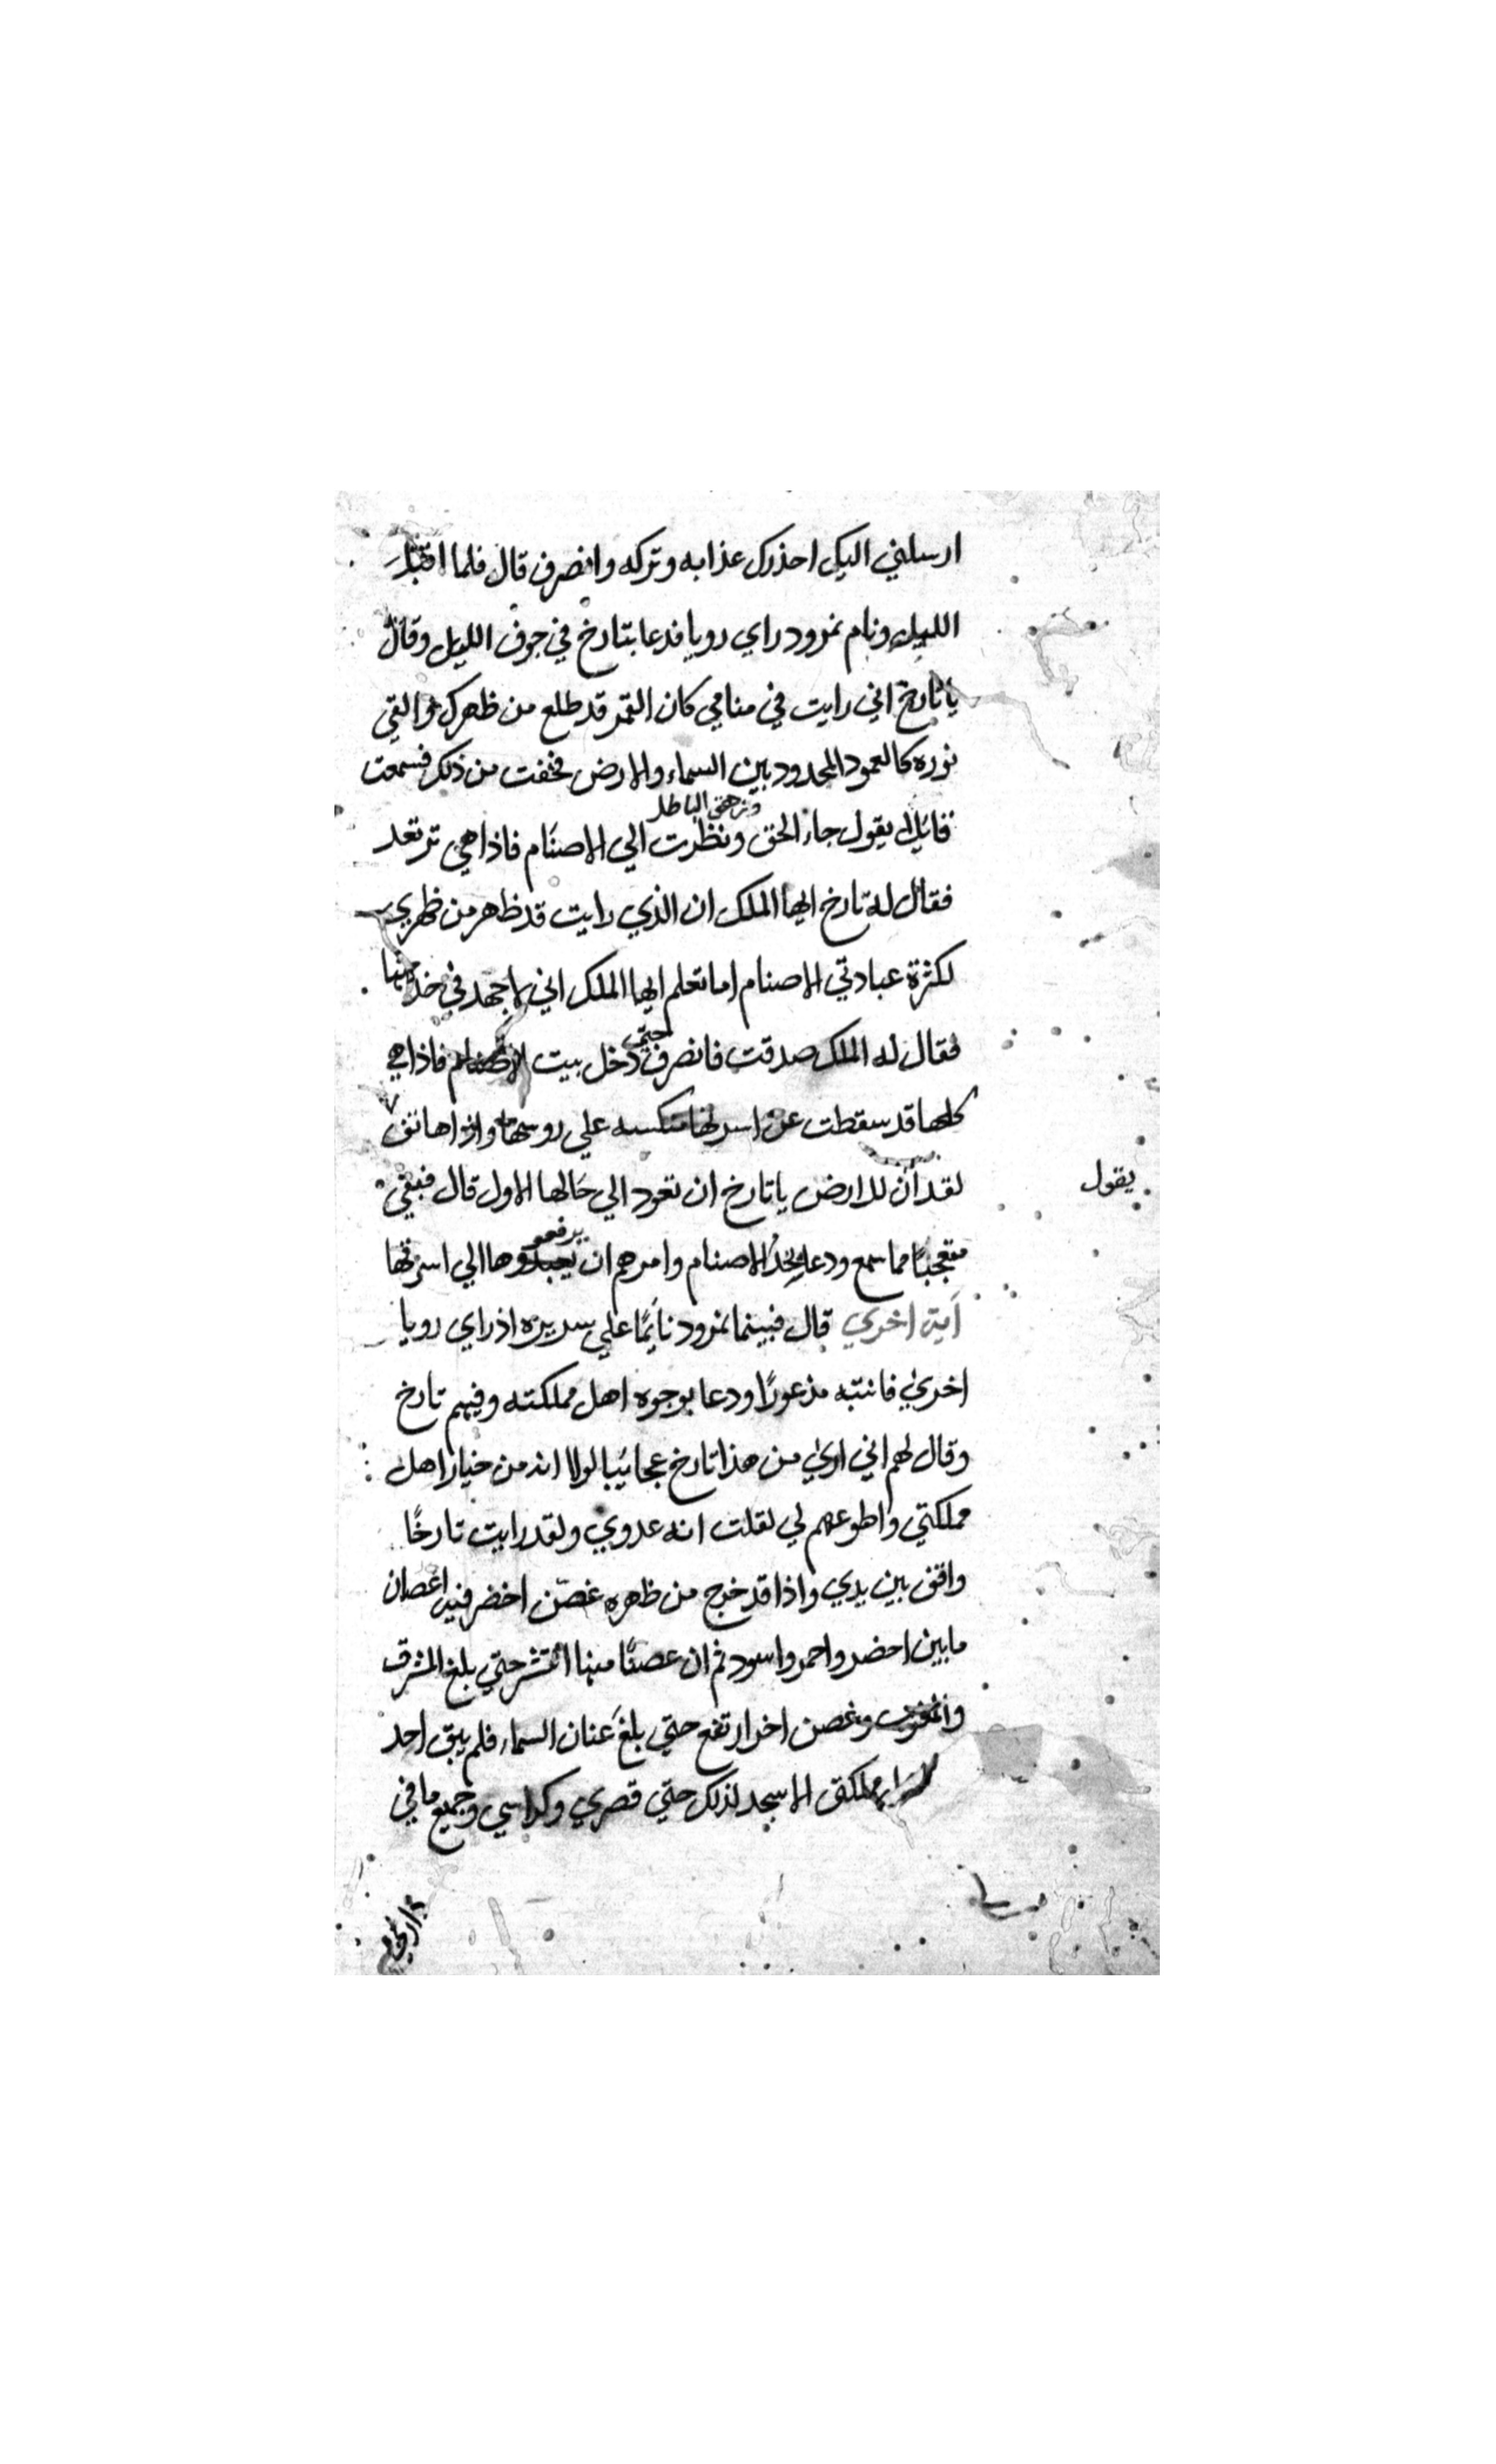 ارسلني اليك احذرك عذابه وتركه وانصرف قال فلما اقبل
الليل ونام نمرود راي رويا فدعا بتارخ في جوف الليل وقال
ياتارخ اني رايت في منامي كان القمر قد طلع من ظهرك والقي
نوره كالعمود الممدود بين السماء والارض فخفت من ذلك فسمعت
قايلا يقول جاء الحق وزهق الباطل ونظرت الي الاصنام فاذا هي ترتعد
فقال له تارخ ايها الملك ان الذي رايت قد ظاهر من ظهري
لكثرة عبادتي الاصنام اما تعلم ايها الملك اني لاجهد في خدمتها
فقال له الملك صدقت فانصرف حتي دخل بيت الاصنام فاذا هي
كلها قد سقطت عن اسرتها منكسه علي روسها واذا هاتف
يقول
لقد آن للارض ياتارخ ان تعود الي حالها الاول قال فبقي
متعجبًا مما سمع ودعا بخدم الاصنام وامرهم ان يرفعوها الي اسرتها
آية اخري قال فبينما نمرود نايمًا علي سريره اذ راي رويا
اخري فانتبه مذعورًا ودعا بوجوه اهل مملكته وفيهم تارخ
وقال لهم اني اري من هذا تارخ عجايبا لولا انه من خيار اهل
مملكتي واطوعهم لي لقلت انه عدوي ولقد رايت تارخًا
واقف بين يدي واذا قد خرج من ظهره غصن اخضر فيه اغصان
ما بين اخضر واحمر واسود ثم ان غصنًا منها انتشر حتي بلغ المشرق
والمغرب وغصن اخر ارتفع حتي بلغ عنان السماء فلم يبق احد
مملكتي الا سجد لذلك حتي قصري وكراسي وجميع ما في